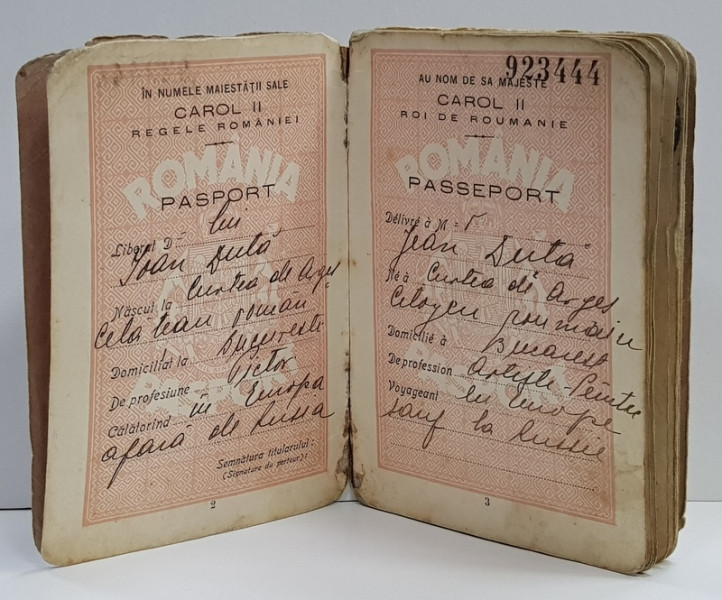 ÎN NUMELE MAIESTĂȚII SALE
CAROL II
REGELE ROMÂNIEI
ROMÂNIA
PASPORT
Liberat D lui
Ioan Dută
Născut la Curtea de Argeș
Cetățean român
Domiciliat la București
De profesiune Pictor
Călătorind în Europa
afară de Rusia
Semnătura titularului:
(Signature du porteur):
2
923444
AU NOM DE SA MAJESTE
CAROL II
ROI DE ROUMANIE
ROMÂNIA
PASSEPORT
Délivré à M
Jean Dută
Né à Curtea de Argeș
Citoyen roumain
Domicilié à Bucarest
De profession Artiste-Peintre
Voyageant en Europe
sauf la Russie
3